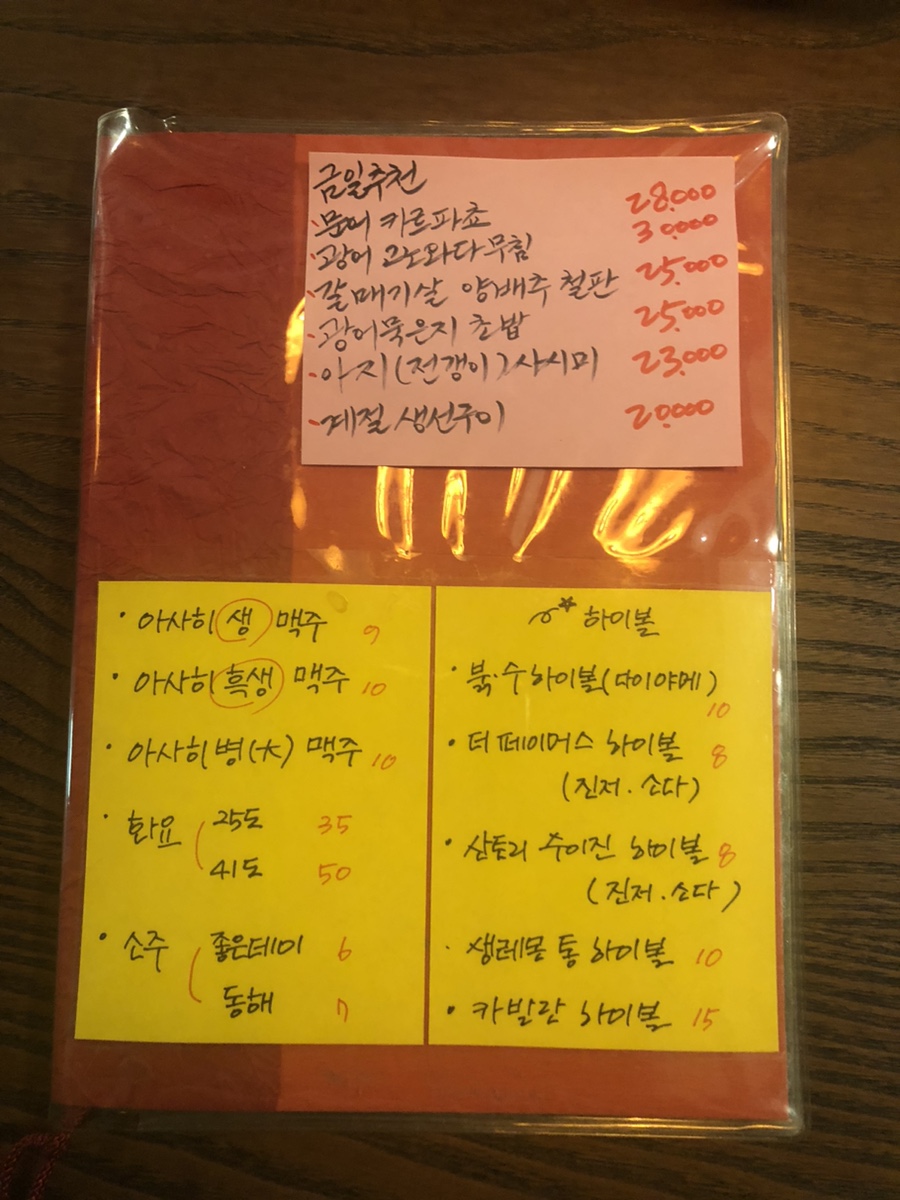 금일추천
문어 카르파쵸 28.000
광어 고노와다무침 30.000
갈매기살 양배추 철판 25.000
광어묵은지 초밥 25.000
아지(전갱이)사시미 23.000
계절 생선구이 20.000
· 아사히 생 맥주 9
· 아사히 흑생 맥주 10
· 아사히 병(大) 맥주 10
· 화요 25도 35
41도 50
· 소주 좋은데이 6
동해 7
하이볼
· 붉·수하이볼(다이야메)
10
· 더 페이머스 하이볼 8
(진저·소다)
· 산토리 수이진 하이볼 8
(진저·소다)
· 생레몬 통 하이볼 10
· 카발란 하이볼 15